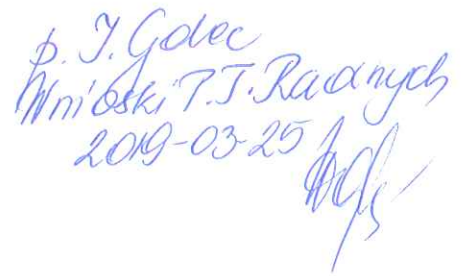 p. J. Golec
Wnioski P.T. Radnych
2019-03-25